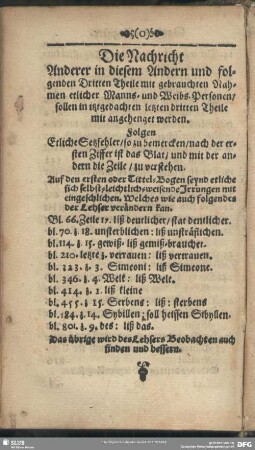 (0)
Die Nachricht
Anderer in diesem Andern und fol-
genden Dritten Theile mit gebrauchten Nah-
men etlicher Manns- und Weibs-Personen/
sollen in itzgedachten letzten dritten Theile
mit angehenget werden.
Folgen
Etliche Setzfehler/ so zu bemercken/ nach der er-
sten Ziffer ist das Blat/ und mit der an-
dern die Zeile/ zu verstehen.
Auf den ersten oder Titels-Bogen seynd etliche
sich selbst leichtlich weisende Irrungen mit
eingeschlichen. Welches wie auch folgendes
der Lehser verändern kan.
Bl. 66. Zeile 17. liß deutlicher/ stat dentlicher.
bl. 70. z. 18. unsterblichen: liß unsträflichen.
bl. 114. z. 15. gewiß: liß gemiß-brauchet.
bl. 210. letzte z. verrauen: liß vertrauen.
bl. 323. z. 3. Simeoni: liß Simeone.
bl. 346. z. 4. Welt: liß Welt.
bl. 414. z. 1. liß kleine
bl. 455. z. 15. Serbens: liß: sterbens
bl. 184. z. 14. Sybillen; soll heissen Sibyllen.
bl. 801. z. 9. des: liß das.
Das übrige wird des Lehsers Beobachten auch
finden und bessern.
SLUB
DFG